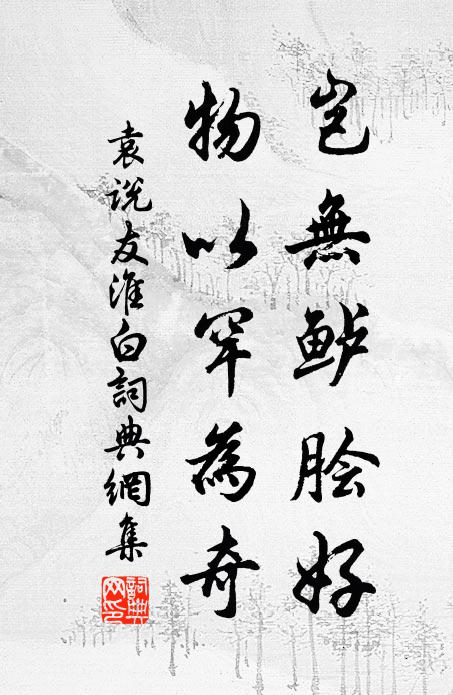 岂無鲈脍好
物以罕為奇
袁说友淮白詞典網集
詞典網印